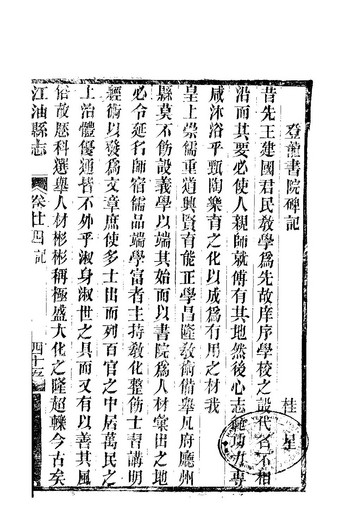 登龍書院碑記
桂星
昔先王建國君民教學為先故庠序學校之設代名不相
沿而其要必使人親師就傅有其地然後心志純功力專
咸沐浴乎甄陶樂育之化以成為有用之材我
皇上崇儒重道興賢育能正學昌隆教術備舉凡府廳州
縣莫不飭設義學以端其始而以書院為人材彙出之地
必令延名師宿儒品端學富者主持教化整飭士習講明
經術以發為文章庶使多士出而列百官之中居萬民之
上治體優通皆不外乎淑身淑世之具而又有以善其風
俗故歷科選舉人材彬彬稱極盛大化之隆超軼今古矣
江油縣志
卷廿四記
四十五